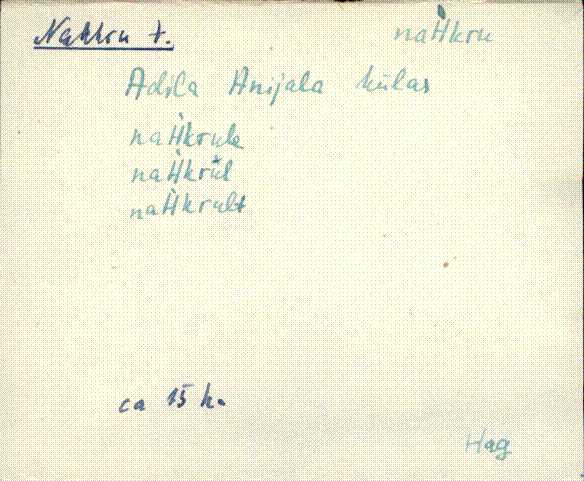 Nahkru t.
naH̀kru
Adila Anijala külas
naH̀krule
naH̀krūl
naH̀krult
ca 15 h.
Hag